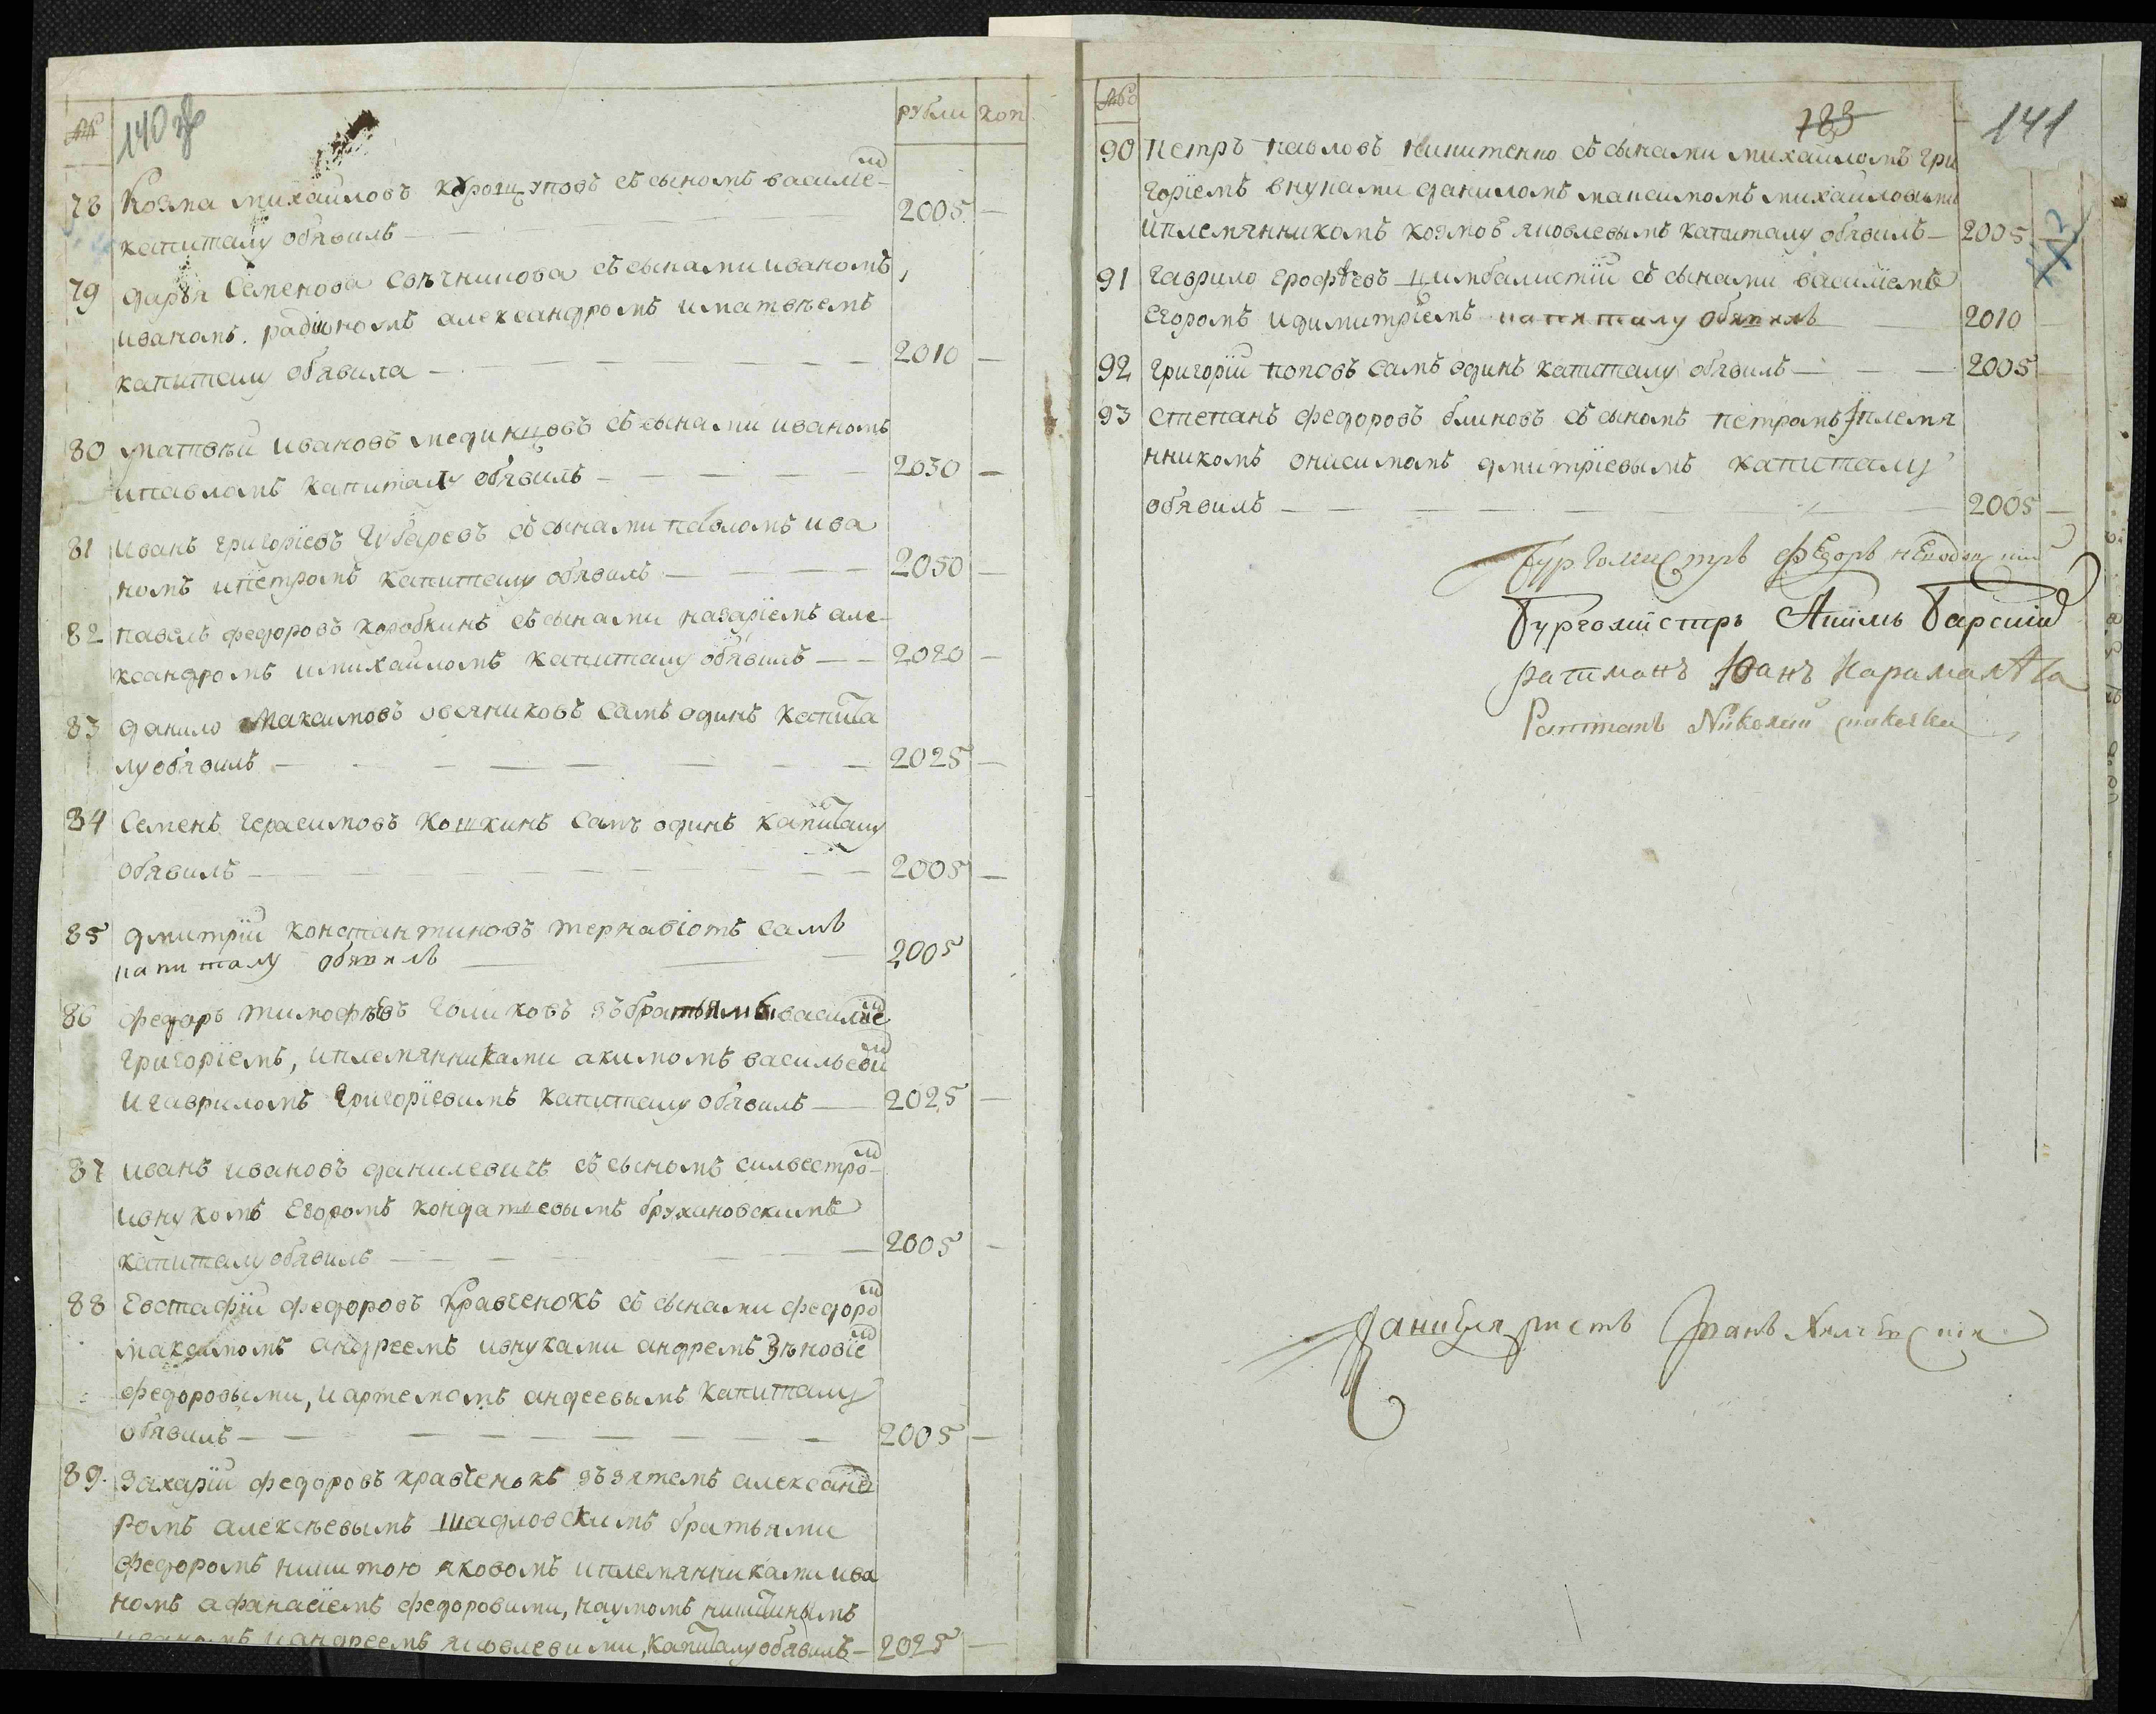 №
140 об
рубли коп
78 Козма михайловъ курощуповъ съ сыномъ василіемъ
капиталу обявилъ — 2005 —
79 дарья Семенова Свѣчникова съ сынами иваномъ,
иваномъ. радіономъ александромъ иматвѣемъ
капиталу обявила — 2010 —
80 матвѣй ивановъ мединцовъ съ сынами иваномъ
ипавломъ капиталу обявилъ — 2030 —
81 иванъ григоріевъ Губаревъ съ сынами павломъ ива
номъ ипетромъ капиталу обявилъ — 2050 —
82 павелъ федоровъ коробкинъ съ сынами назаріемъ але-
ксандромъ имихайломъ капиталу обявилъ — 2020 —
83 данило Максимовъ овсяниковъ самъ одинъ капита
лу обявилъ — 2025 —
84 Семенъ герасимовъ кошкинъ самъ одинъ капиталу
обявилъ — 2005 —
85 дмитрій константиновъ тернавіотъ самъ
капиталу обявилъ — 2005
86 федаръ тимофѣевъ голиковъ зъ братьями василіемъ
григоріемъ, иплемянниками акимомъ васильевим
игавриломъ григоріевимъ капиталу обявилъ — 2025 —
87 иванъ ивановъ данилевичъ съ сыномъ силвестромъ
ивнукомъ егоромъ кондатіевымъ брухановскимъ
капиталу обявилъ — 2005 —
88 Евстафій федоровъ кравченокъ съ сынами федоромъ
максимомъ андреемъ ивнуками андремъ Зѣновіемъ
федоровыми, иартемомъ андеевымъ капиталу
обявилъ — 2005 —
89. Захарій федоровъ кравченокъ зъ зятемъ александ
ромъ алексѣевымъ шадловскимъ братьями
федоромъ никитою яковомъ иплемянниками ива
номъ афанасіемъ федоровими, наумомъ никитинымъ
иваномъ иандреемъ яковлевими, капиталу обявилъ — 2025 —
№
783
141
90 петръ павловъ никитенко съ сынами михайломъ гри
горіемъ внуками даниломъ максимомъ михайловыми
иплемянникомъ козмою яковлевымъ капиталу обявилъ — 2005
91 гаврило ерофѣевъ цимбалистій съ сынами василіемъ
Егоромъ идимитріемъ капиталу обявилъ — 2010
92 григорій поповъ самъ одинъ капиталу обявилъ — 2005
93 степанъ федоровъ блиновъ съ сыномъ петромъ иплемя
нникомъ онисимомъ дмитріевымъ капиталу
обявилъ — 2005 —
Бургомистръ Федоръ
Бургомистръ Барскій
ратманъ
Ратманъ Николай
Канцеляристъ Иванъ